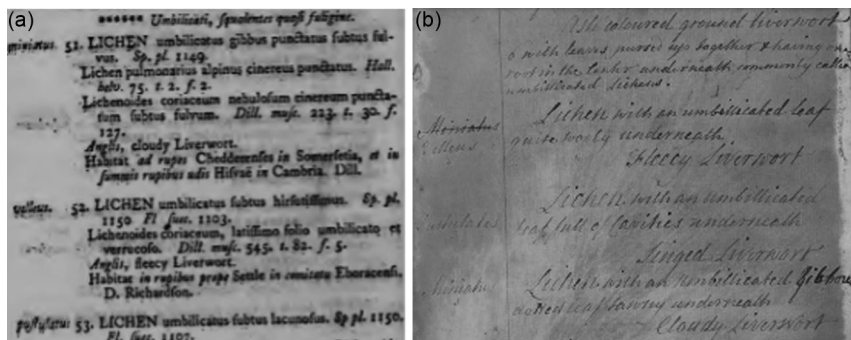 (a)
****** Umbilicati, squalentes quasi fuligine.
miniatus 51. LICHEN umbilicatus gibbus punctatus subtus ful-
vus. Sp. pl. 1149.
Lichen pulmonarius alpinus cinereus punctatus. Hall.
helv. 75. t. 2. f. 2.
Lichenoides coriaceum nebulosum cinereum puncta-
tum subtus fulvum. Dill. musc. 223. t. 30. f.
127.
Anglis, cloudy Liverwort.
Habitat ad rupes Cheddrenses in Somersetia, et in
summis rupibus udis Hisvæ in Cambria. Dill.
velleus. 52. LICHEN umbilicatus subtus hirsutissimus. Sp. pl.
1150. Fl suec. 1103.
Lichenoides coriaceum, latissimo folio umbilicato et
verrucoso. Dill. musc. 545. t. 82. f. 5.
Anglis, fleecy Liverwort.
Habitat in rupibus prope Settle in comitatu Eboracensi.
D. Richardson.
pustulatus 53. LICHEN umbilicatus subtus lacunosus. Sp pl. 1150.
Fl. suec. 1107.
(b)
Ash coloured ground liverwort
with leaves pursed up together & having one
root in the center underneath commonly called
umbilicated Lichens.
Miniatus
Velleus
Lichen with an umbillicated leaf
quite wooly underneath
Fleecy Liverwort
Pustulatus
Lichen with an umbillicated
leaf full of Cavities underneath
Singed Liverwort
Miniatus
Lichen with an umbillicated Gibbous
dotted leaf tawney underneath
Cloudy Liverwort